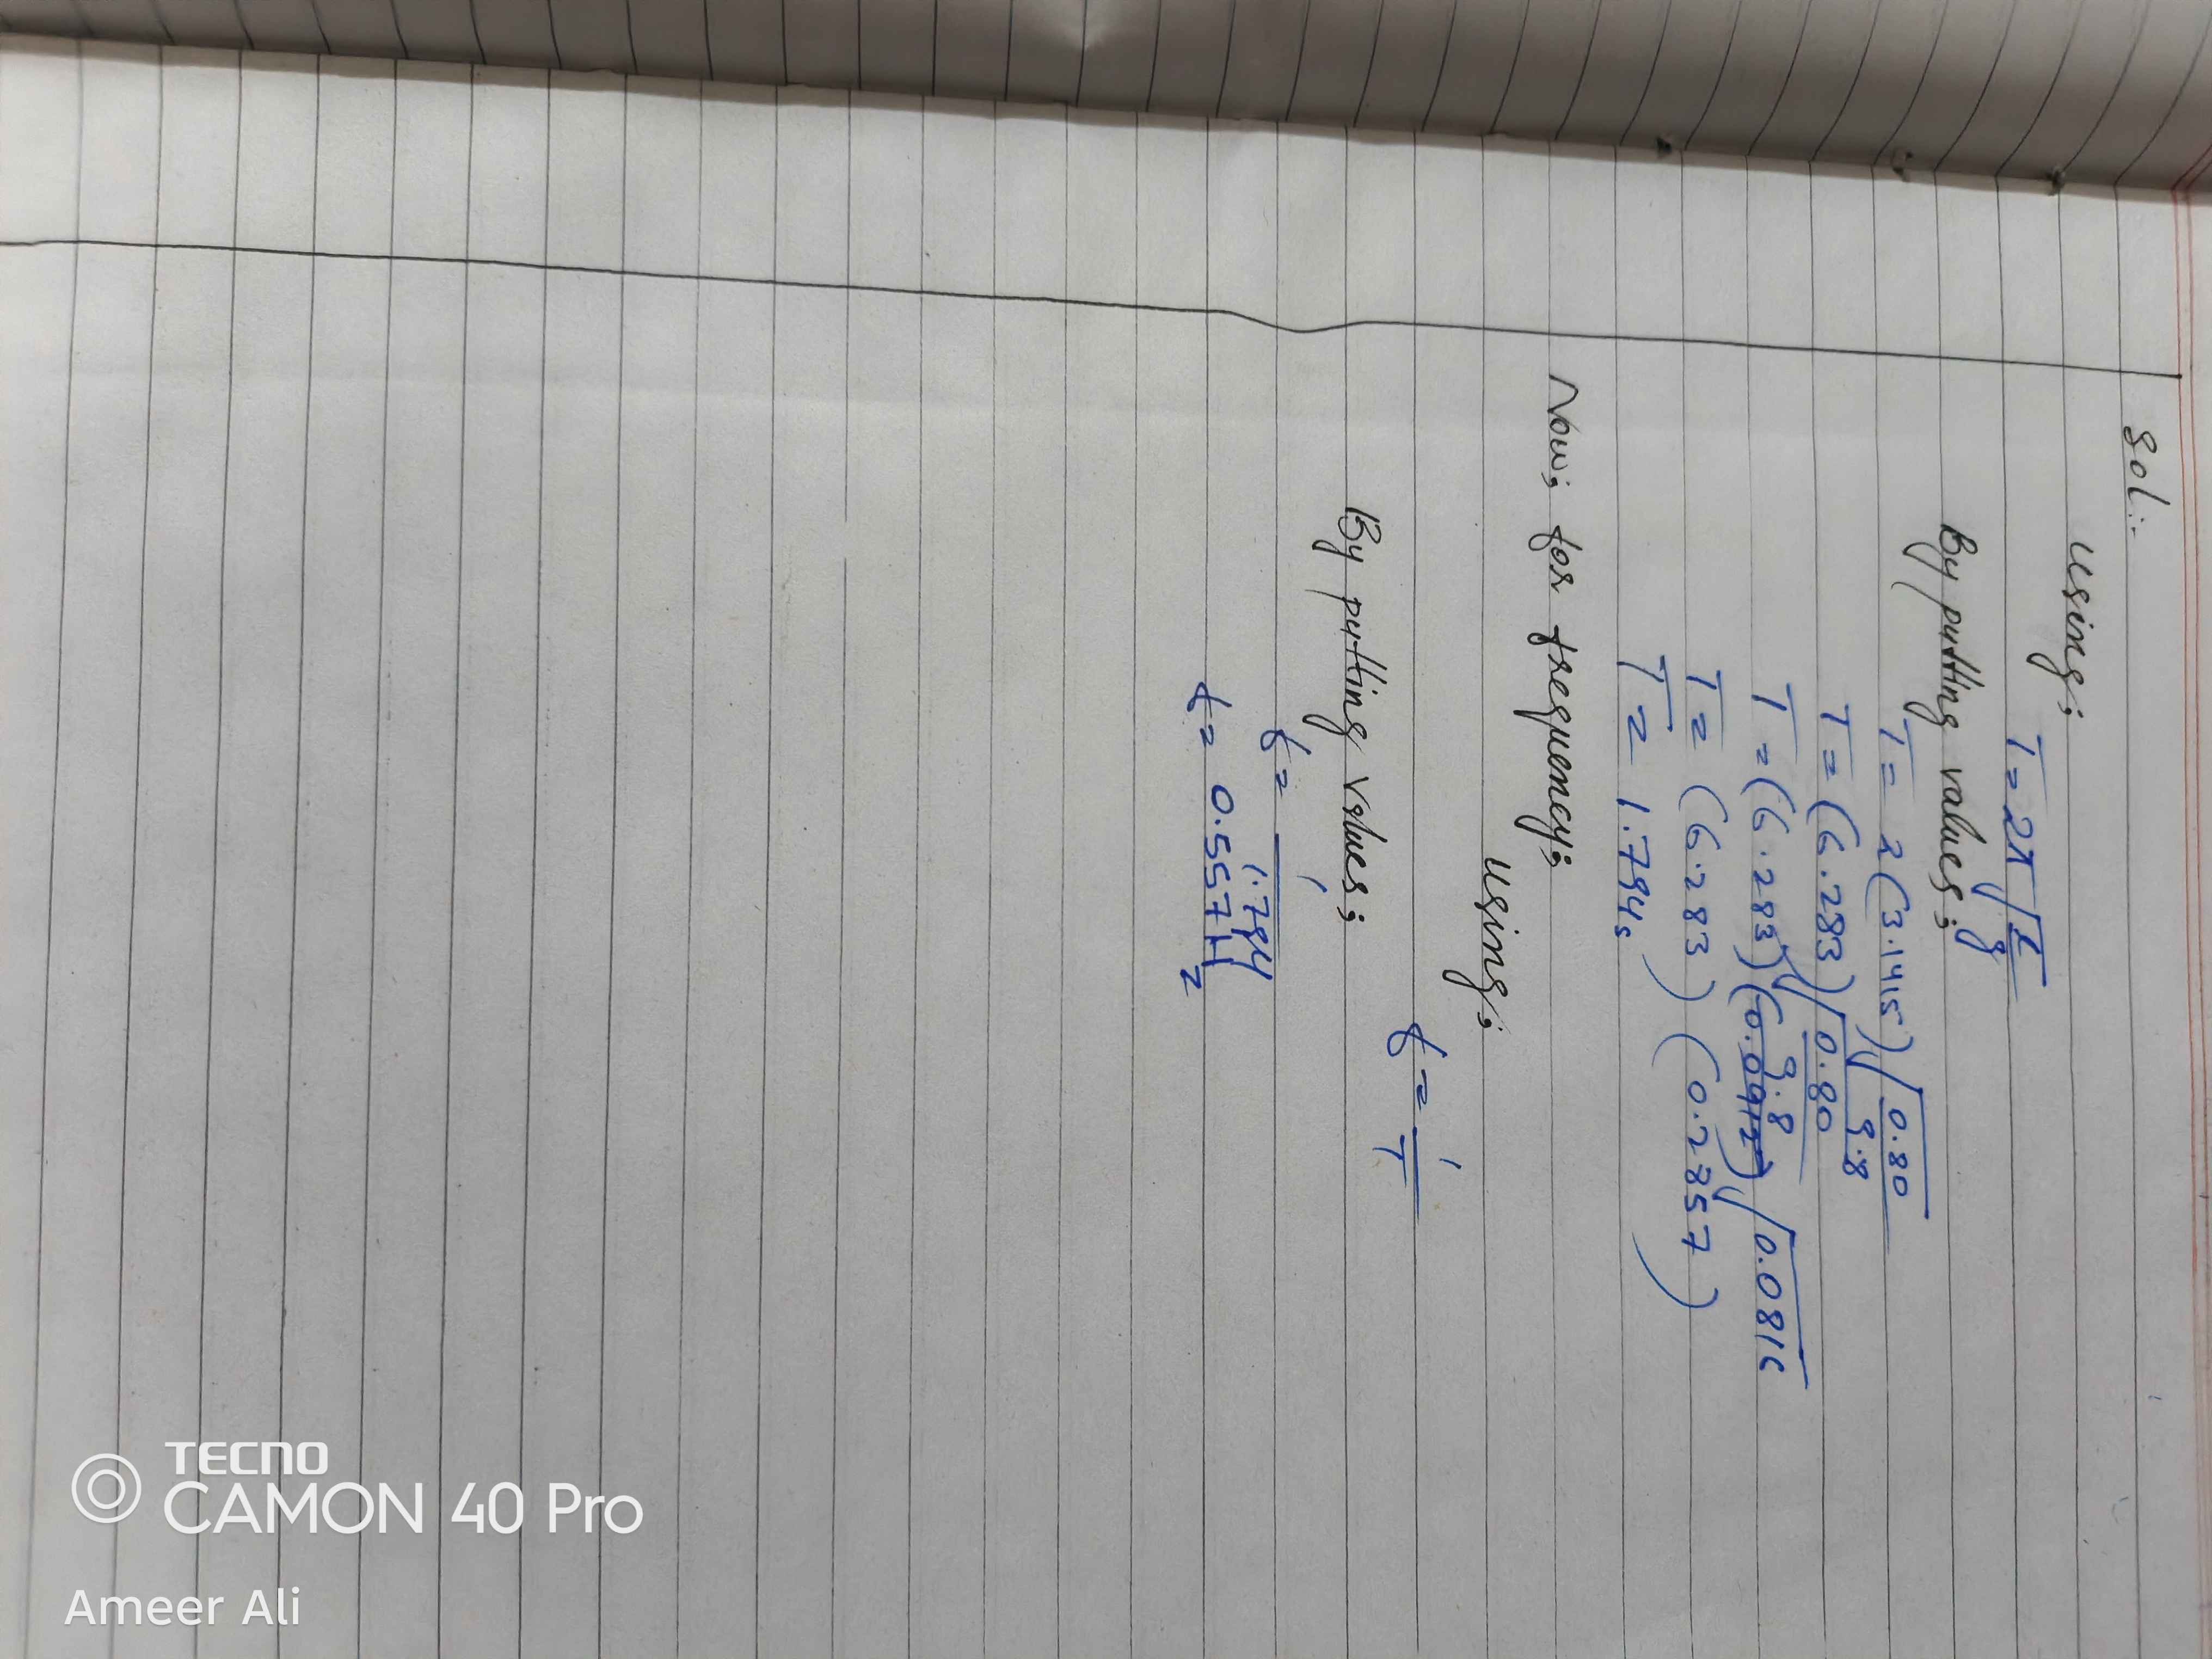 Sol:-
using;
T = 2π √l/g
By putting values;
T = 2(3.1415) √0.80/9.8
T = (6.283) √0.80/9.8
T = (6.283) √0.0816
T = (6.283) (0.2857)
T = 1.794s
Now; for frequency;
using;
f = 1/T
By putting values;
f = 1/1.794
f = 0.557Hz
TECNO
CAMON 40 Pro
Ameer Ali